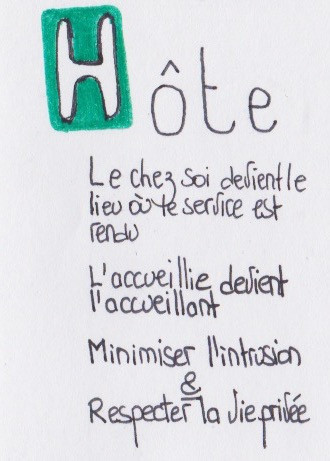 Hôte
Le chez soi devient le
lieu où le service est
rendu
L'accueillie devient
l'accueillant
Minimiser l'intrusion
&
Respecter la vie privée